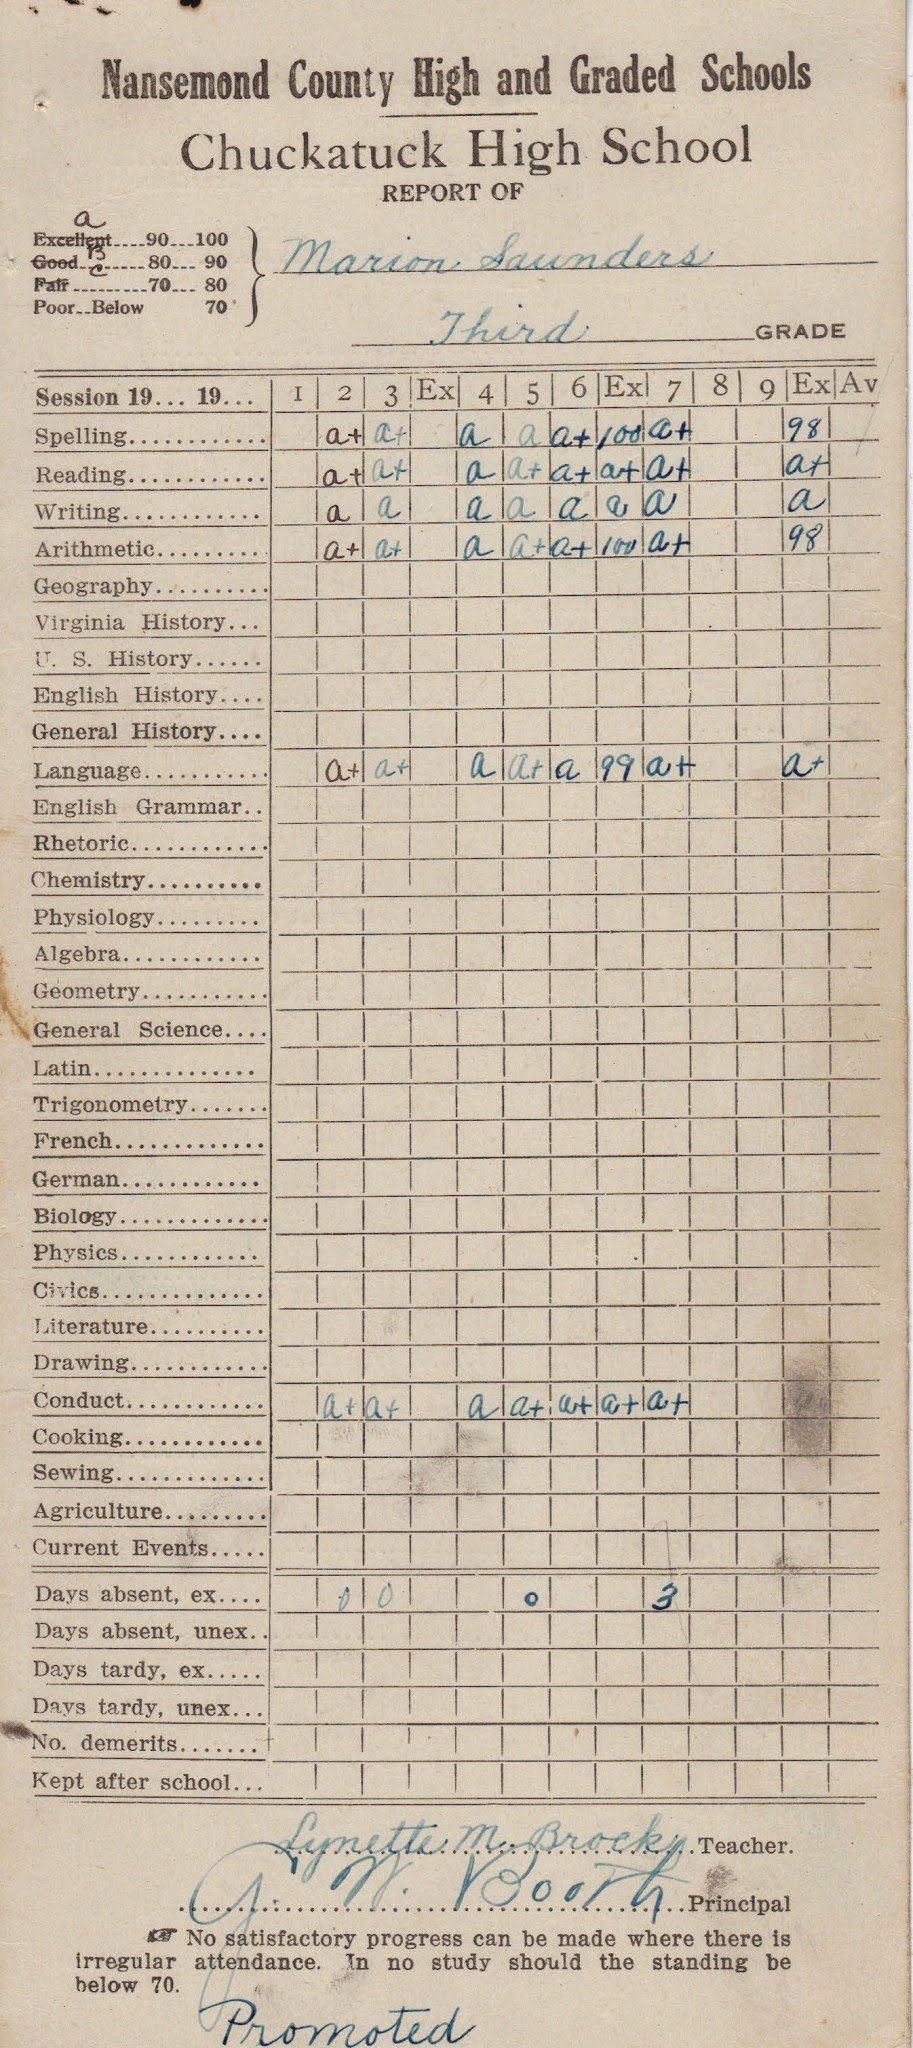 Nansemond County High and Graded Schools
Chuckatuck High School
REPORT OF
a
Excellent....90...100
B
Good........80... 90
C
Fair.........70... 80
Poor..Below 70
Marion Saunders
Third GRADE
Session 19... 19... 1 2 3 Ex 4 5 6 Ex 7 8 9 Ex Av
Spelling............ a+ a+ a a a+ 100 a+ 98
Reading............ a+ a+ a a+ a+ a+ a+ a+
Writing........... a a a a a a a a
Arithmetic.......... a+ a+ a a+ a+ 100 a+ 98
Geography..........
Virginia History...
U. S. History......
English History....
General History....
Language........... a+ a+ a a+ a 99 a+ a+
English Grammar..
Rhetoric............
Chemistry..........
Physiology.........
Algebra............
Geometry...........
General Science....
Latin..............
Trigonometry.......
French.............
German............
Biology.............
Physics............
Civics..............
Literature..........
Drawing............
Conduct............ a+ a+ a a+ a+ a+ a+
Cooking............
Sewing.............
Agriculture.........
Current Events.....
Days absent, ex.... 0 0 0 3
Days absent, unex..
Days tardy, ex.....
Days tardy, unex...
No. demerits.......
Kept after school...
Lynette M. Brock Teacher.
G. W. Booth Principal
☞ No satisfactory progress can be made where there is
irregular attendance. In no study should the standing be
below 70.
Promoted